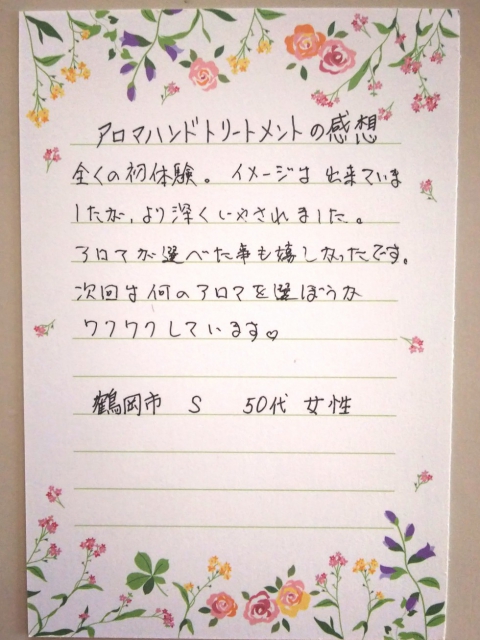 アロマハンドトリートメントの感想
全くの初体験。イメージは出来ていま
したが、より深くいやされました。
アロマが選べた事も嬉しかったです。
次回は何のアロマを選ぼうか
ワクワクしています♡
鶴岡市 S 50代 女性